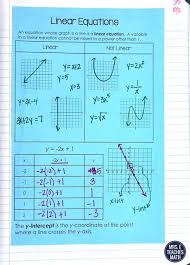 Linear Equations
An equation whose graph is a line is a linear equation. A variable
in a linear equation cannot be raised to a power other than 1.
Linear
Not Linear
y=x+2
y=5
x=3
y=2x²
y=3x-4
3x+2y=7
y=3x⁵
y=√x
y = -2x + 1
x
-2x+1
y
-2
-2(-2)+1
5
-1
-2(-1)+1
3
0
-2(0)+1
1
-2(1)+1
-1
2
-2(2)+1
-3
x-int
y-int
The y-intercept is the y-coordinate of the point
where a line crosses the y-axis.
MRS. E
TEACHES
MATH